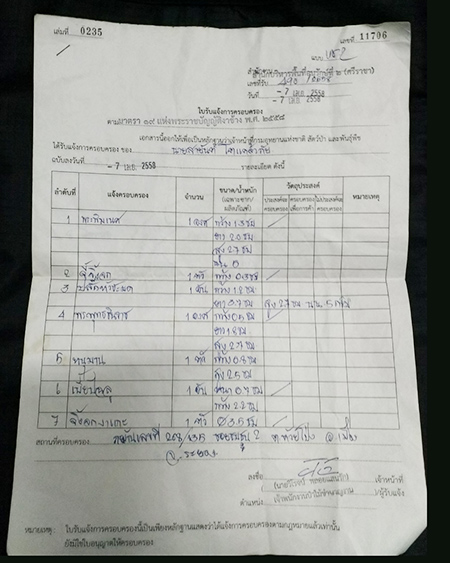 เล่มที่ 0235
เลขที่ 11706
แบบ
สำนักบริหารพื้นที่อนุรักษ์ที่ ๒ (ศรีราชา)
เลขที่รับ
วันที่ -7 เม.ย. 2558
ใบรับแจ้งการครอบครอง
ตามมาตรา ๑๙ แห่งพระราชบัญญัติงาช้าง พ.ศ. ๒๕๕๘
เอกสารนี้ออกให้เพื่อเป็นหลักฐานว่าเจ้าหน้าที่กรมอุทยานแห่งชาติ สัตว์ป่า และพันธุ์พืช
ได้รับแจ้งการครอบครอง ของ
ฉบับลงวันที่ -7 เม.ย. 2558 รายละเอียด ดังนี้
ลำดับที่ แจ้งครอบครอง จำนวน ขนาด/น้ำหนัก (เฉพาะซาก/ผลิตภัณฑ์) วัตถุประสงค์ หมายเหตุ
ประสงค์จะครอบครอง ครอบครองเพื่อการค้า ไม่ประสงค์จะครอบครอง
1 พระพิฆเนศ 1 องค์ กว้าง 1.3 ซม
ยาว 2.0 ซม
สูง 2.7 ซม
2 จิ้งจก 1 ตัว กว้าง 0.3 ซม
3 ปลัดขิก 1 อัน กว้าง 1.2 ซม
ยาว 0.7 ซม สูง 2.7 ซม
4 1 องค์ กว้าง 0.5 ซม
ยาว 1.8 ซม
สูง 2.7 ซม
5 หนุมาน 1 ตัว กว้าง 0.8 ซม
สูง 2.5 ซม
6 1 อัน หนา 0.7 ซม
กว้าง 2.2 ซม
7 1 ตัว Ø 3.5 ซม
สถานที่ครอบครอง บ้านเลขที่ 2 ต.ห้วยโป่ง อ.เมือง
จ.ระยอง
ลงชื่อ เจ้าหน้าที่
ผู้รับแจ้ง
ตำแหน่ง
หมายเหตุ ใบรับแจ้งการครอบครองนี้เป็นเพียงหลักฐานแสดงว่าได้แจ้งการครอบครองตามกฎหมายแล้วเท่านั้น
ยังมิใช่ใบอนุญาตให้ครอบครอง